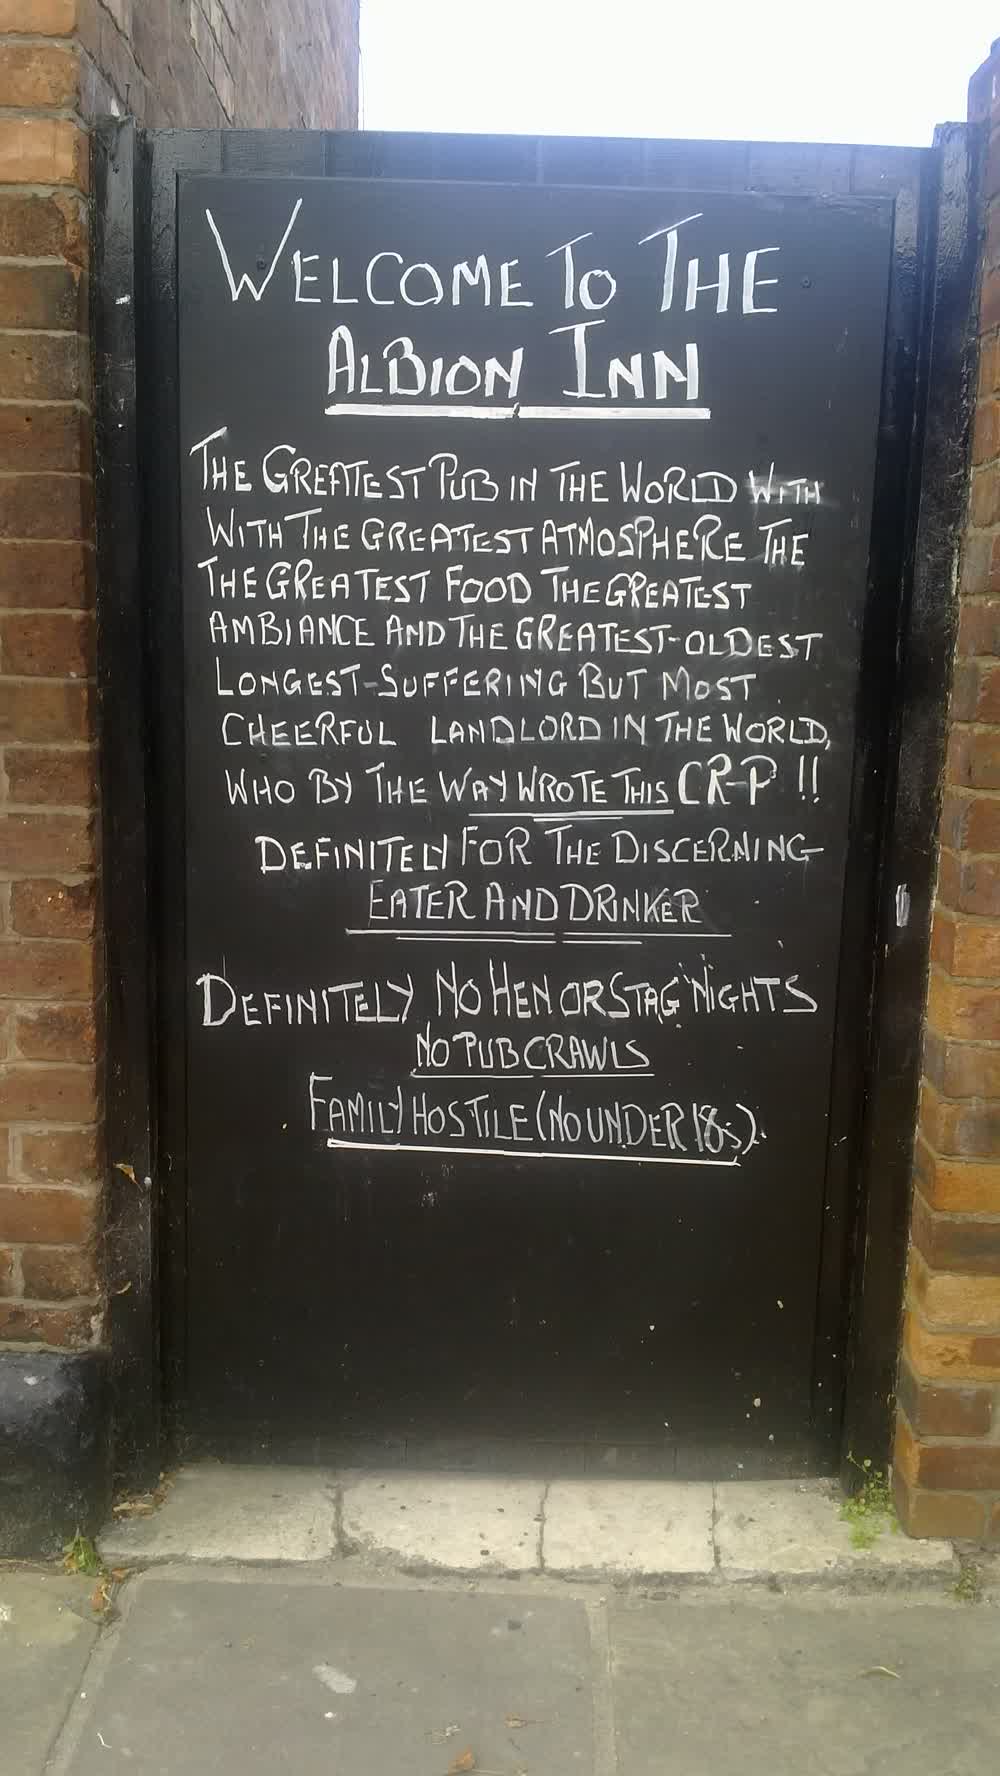 WELCOME TO THE
ALBION INN
THE GREATEST PUB IN THE WORLD WITH
WITH THE GREATEST ATMOSPHERE THE
THE GREATEST FOOD THE GREATEST
AMBIANCE AND THE GREATEST-OLDEST
LONGEST-SUFFERING BUT MOST
CHEERFUL LANDLORD IN THE WORLD,
WHO BY THE WAY WROTE THIS CR-P !!
DEFINITELY FOR THE DISCERNING
EATER AND DRINKER
DEFINITELY NO HEN OR STAG NIGHTS
NO PUB CRAWLS
FAMILY HOSTILE (NO UNDER 18s).